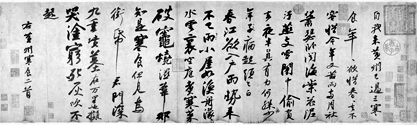 自我來黃州已過三寒
食年年欲惜春春去不
容惜今年又苦雨兩月秋
蕭瑟臥聞海棠花泥
汙燕支雪闇中偷負
去夜半真有力何殊少
年子病起頭已白
春江欲入戶雨勢來
不已小屋如漁舟濛濛
水雲裏空庖煮寒菜
破竈燒濕葦那
知是寒食但見烏
銜帋君門深
九重墳墓在萬里也擬
哭塗窮死灰吹不
起
右黃州寒食二首